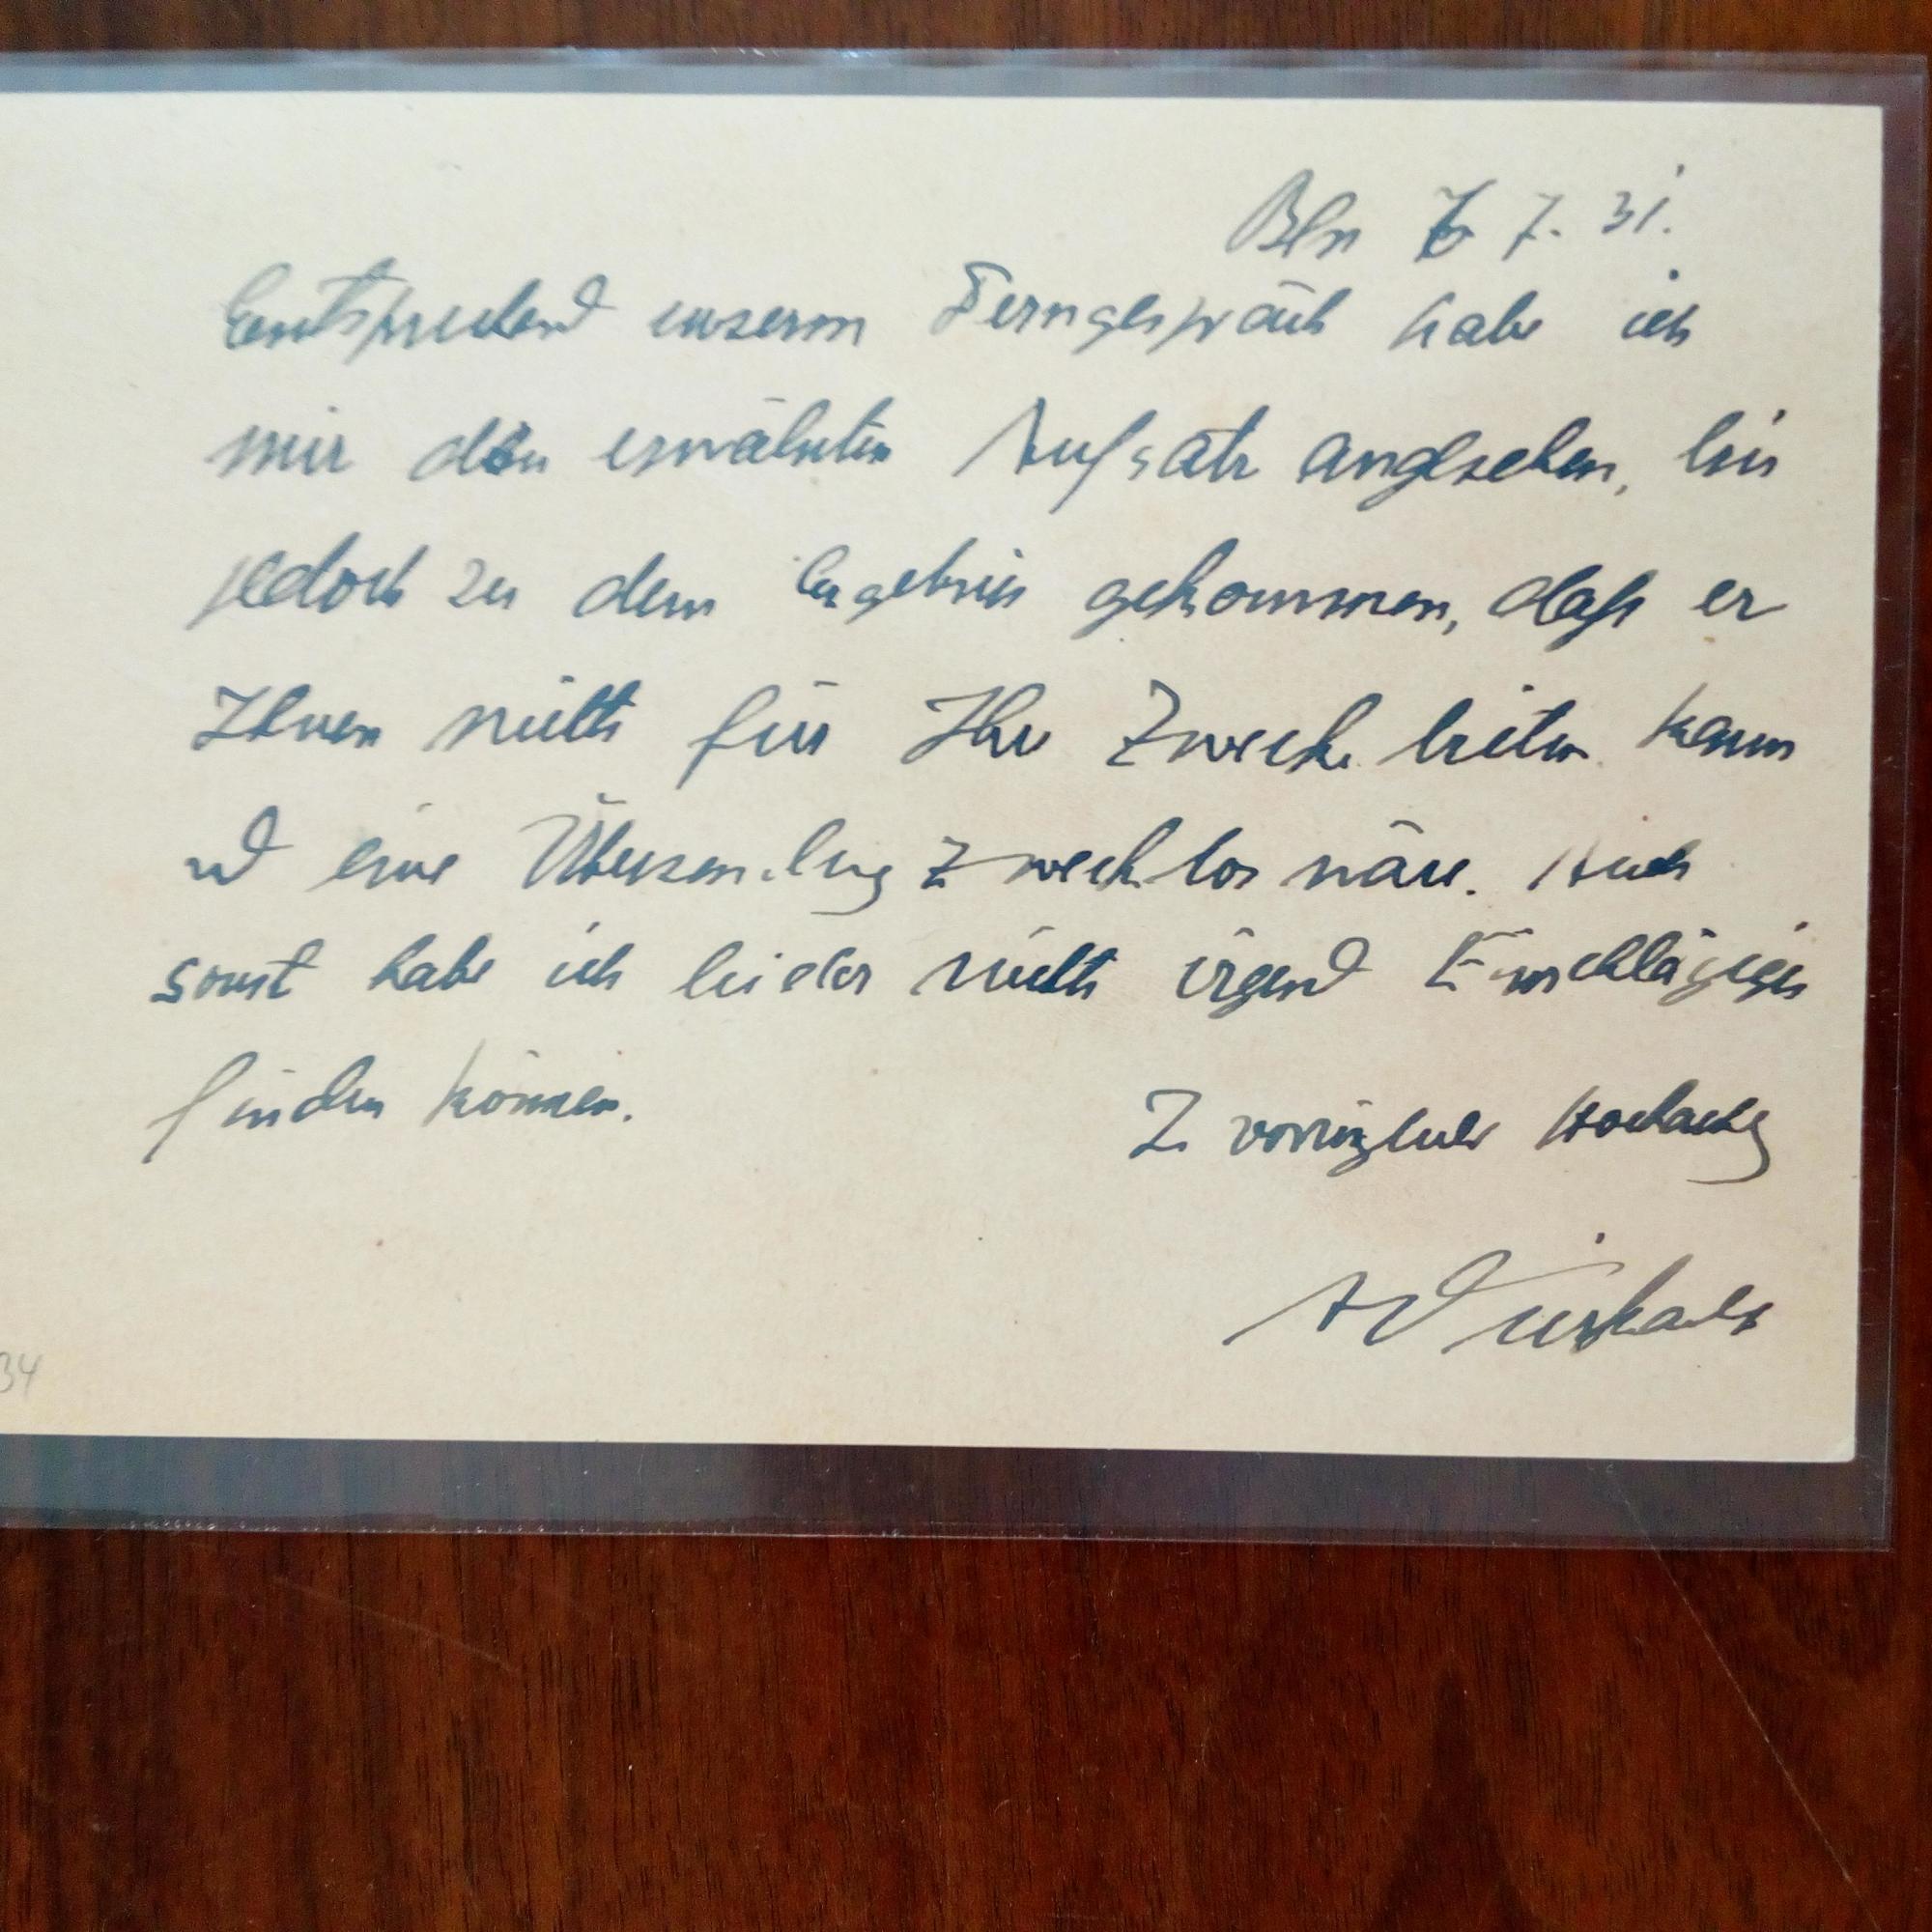 Bln 7. 7. 31.
Entsprechend unserm Ferngespräch habe ich
mir den erwähnten Aufsatz angesehen, bin
jedoch zu dem Ergebnis gekommen, daß er
Ihnen nichts für Ihre Zwecke bieten kann
und eine Übersendung zwecklos wäre. Auch
sonst habe ich leider nichts irgend Einschlägiges
finden können.
Z vorzüglicher Hochachtg
34